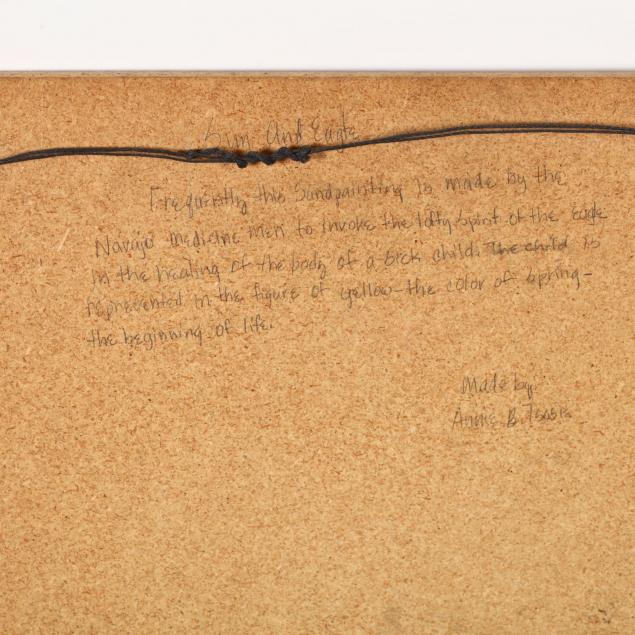 Sun And Eagle
Frequently this Sandpainting is made by the
Navajo medicine men to invoke the lofty spirit of the eagle
in the healing of the body of a sick child. The child is
represented in the figure of yellow-the color of spring-
the beginning of life.
Made by
Annie B. Tsosie